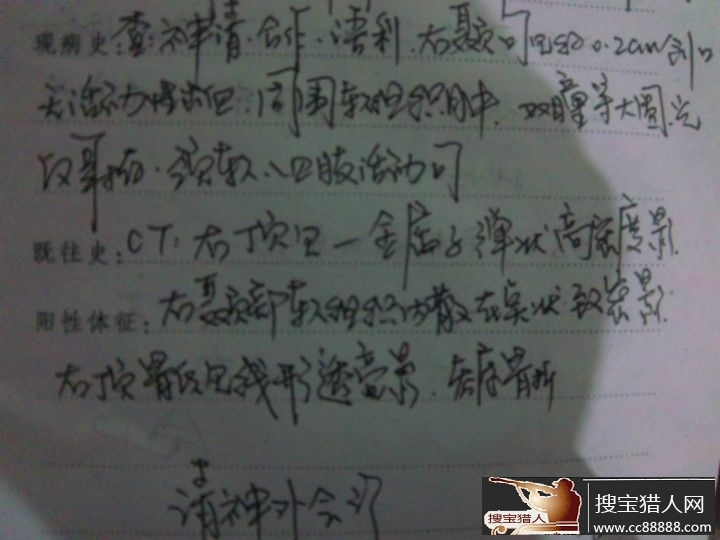 现病史：查:神清.合作.语利.右颞可见约0.2cm创口
无活动性出血.周围软组织肿.双瞳等大圆.光
反灵敏.颈软.四肢活动可
既往史：CT:右顶见一金属子弹状高密度影.
阳性体征：右颞顶部软组织内散在点状致密影.
右顶骨似见线形透亮影.骨折
请神外会诊
搜宝猎人
搜宝猎人网
www.cc88888.com